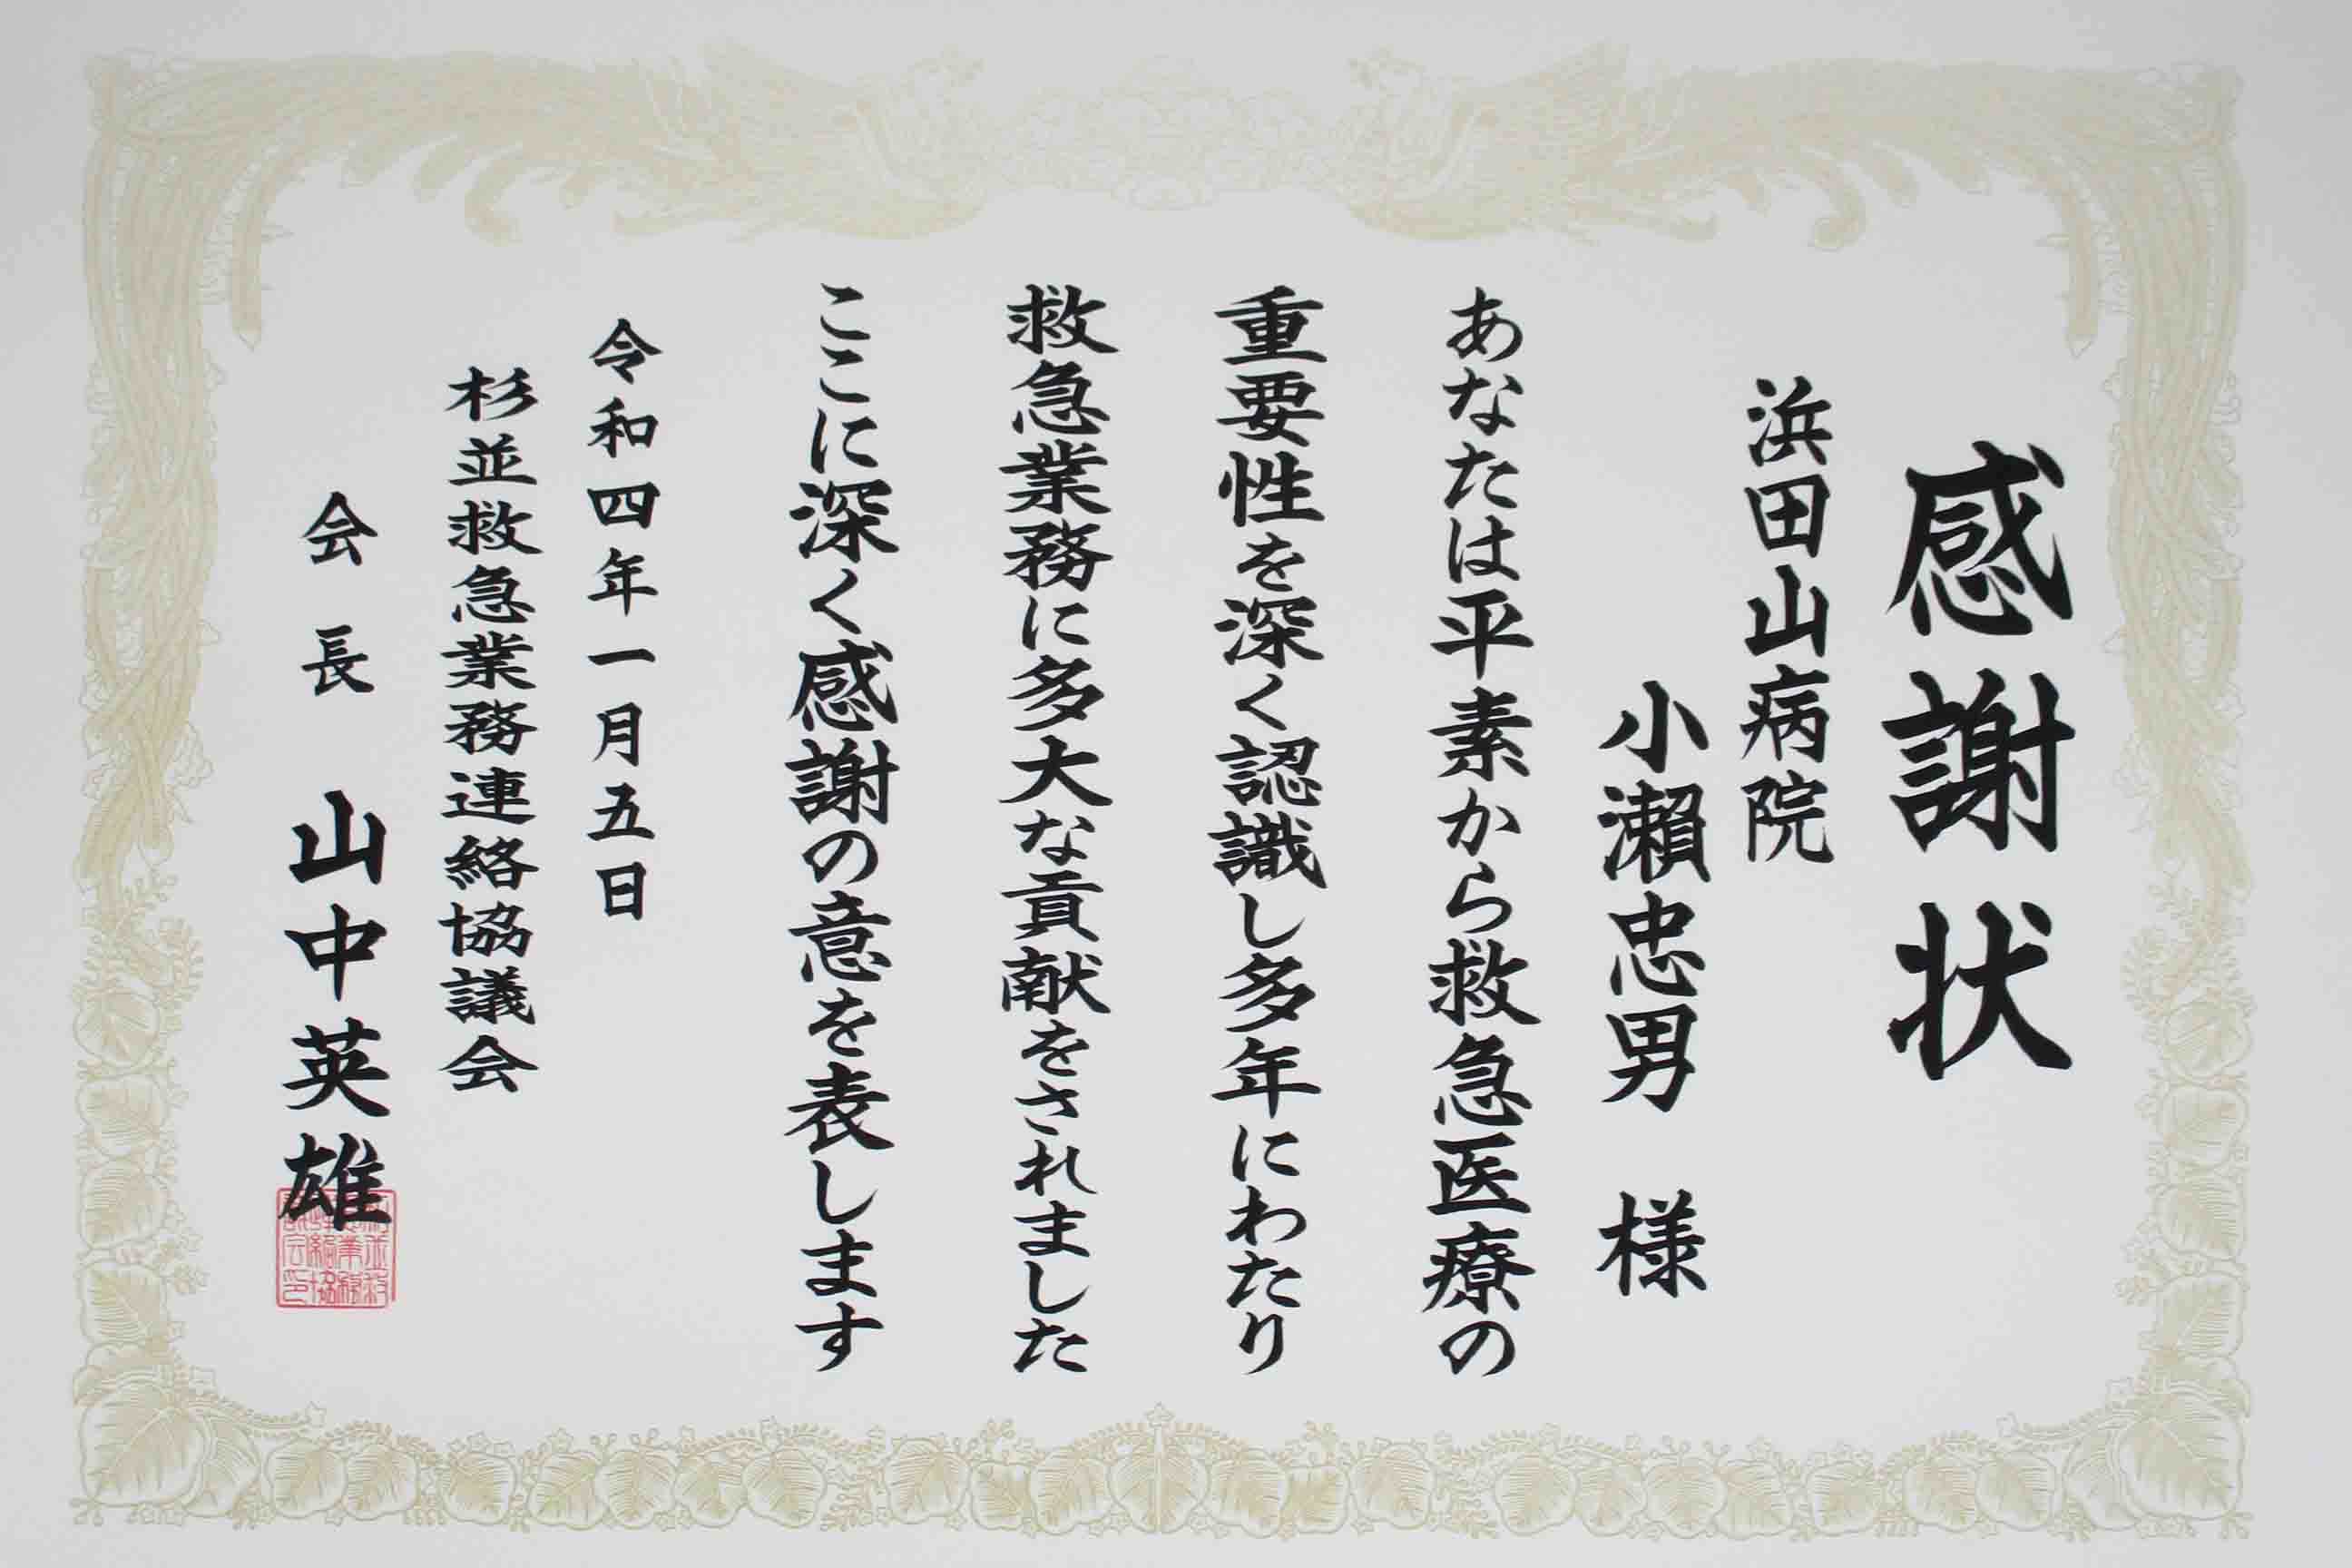 感謝状
浜田山病院
小瀬忠男 様
あなたは平素から救急医療の
重要性を深く認識し多年にわたり
救急業務に多大な貢献をされました
ここに深く感謝の意を表します
令和四年一月五日
杉並救急業務連絡協議会
会長 山中英雄